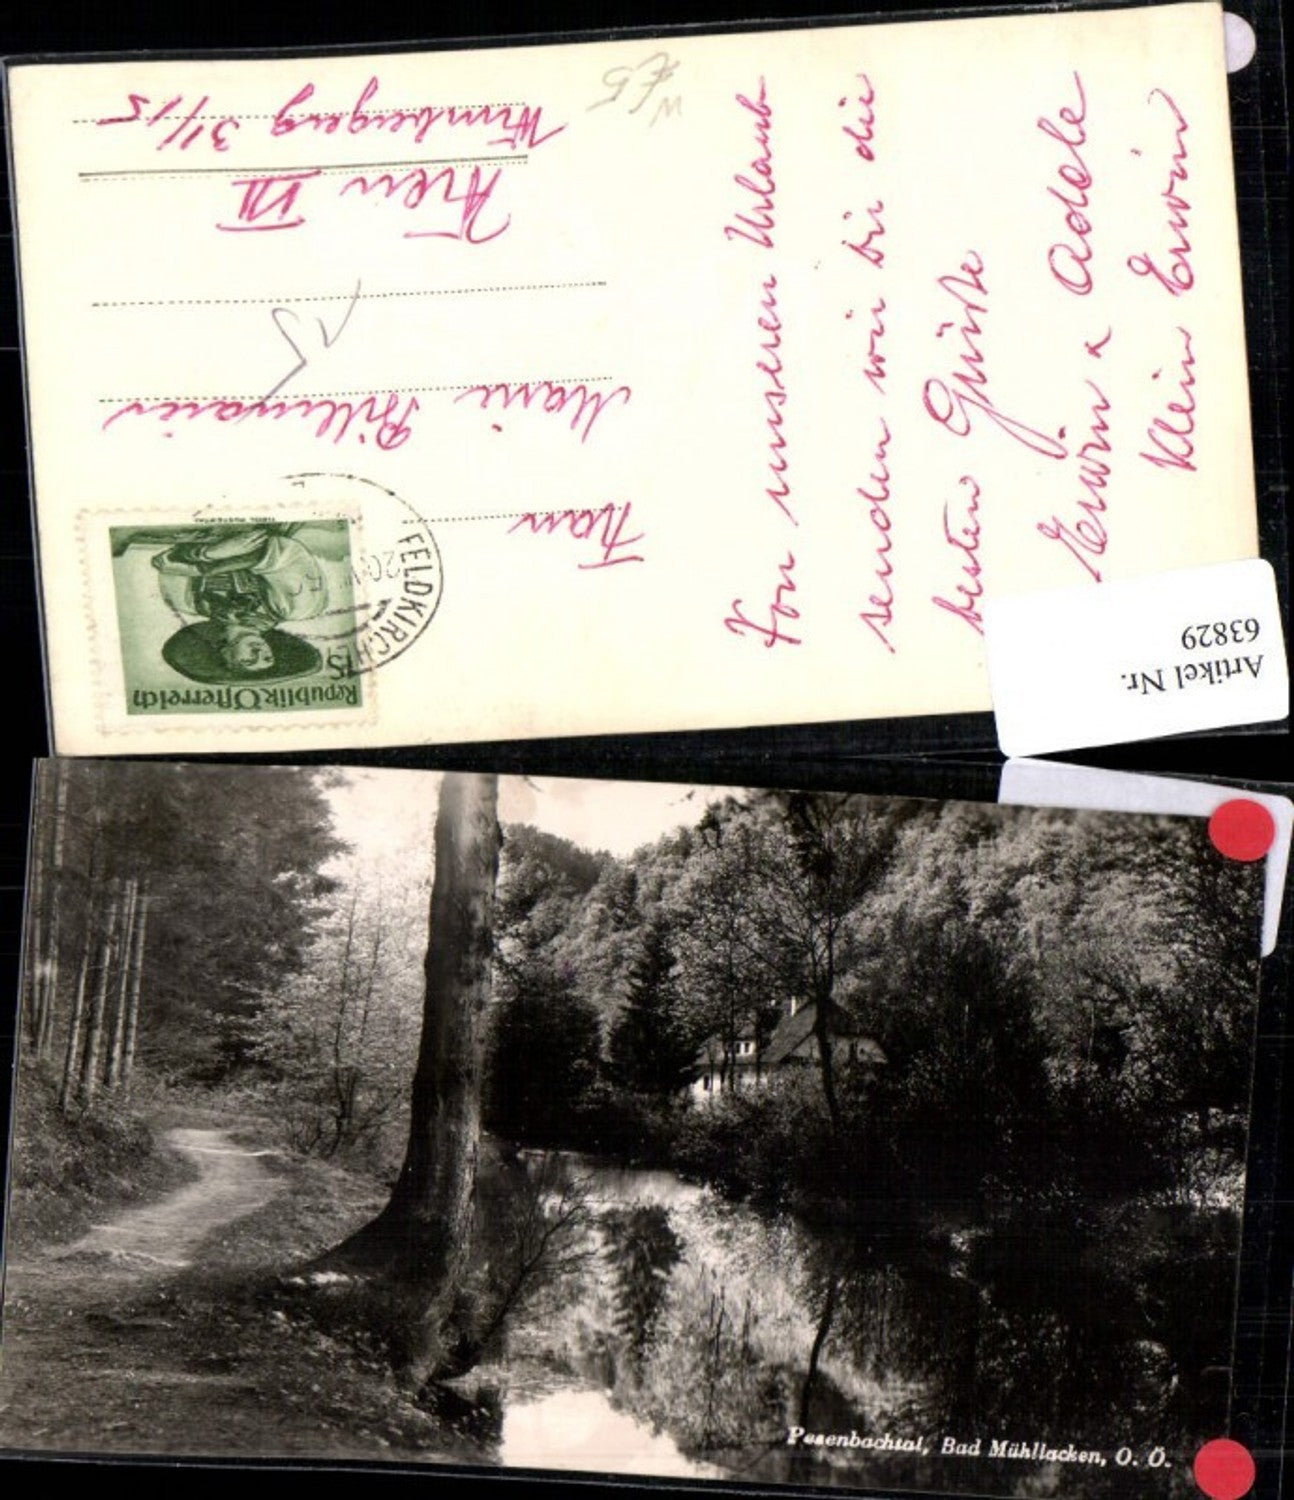 Von unseren Urlaub
senden wir dir die
besten Grüsse
Erwin & Adele
Klein Erwin
Frau
Marie
Wien VII
31/15
Republik Österreich
FELDKIRCH
Artikel Nr.
63829
Pesenbachtal, Bad Mühllacken, O. Ö.